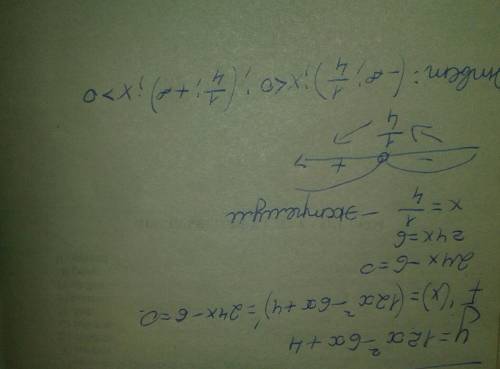 y=12x²-6x+4
f'(x)=(12x²-6x+4)'=24x-6=0.
24x-6=0
24x=6
x=1/4 — экстремум
- +
1/4
Ответ: (-∞; 1/4); x<0; (1/4; +∞); x>0